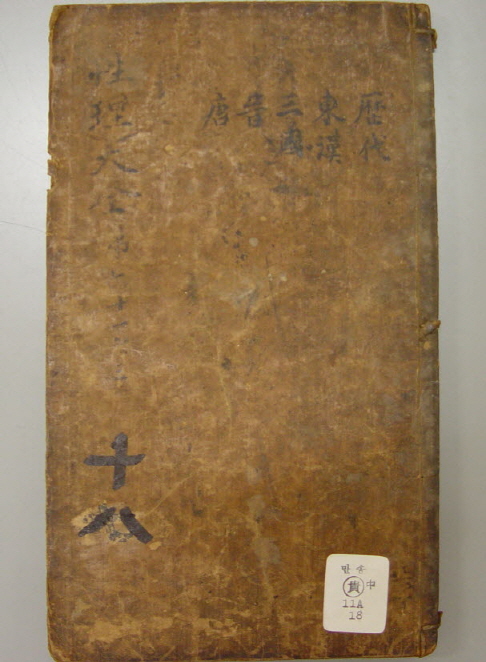 歷代
東漢
三國
晉
唐
性理大全
十八
만송
貴 中
11A
18